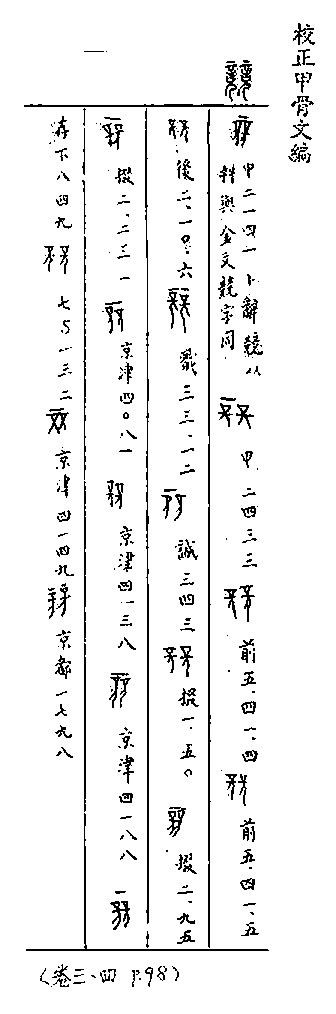 校正甲骨文編
一
競
甲二一四一 卜辭競从
䇂與金文競字同
甲 二四三三
前五.四一.四
前五.四一.五
後二.一〇.六
戩三三.一二
誠 三四三
掇一.五〇
掇二.九五
掇二.二三一
京津四〇八一
京津四一三八
京津四一八八
存下八四九
七S一三二
京津四一四九
京都一七九八
(卷三.四 P.98)